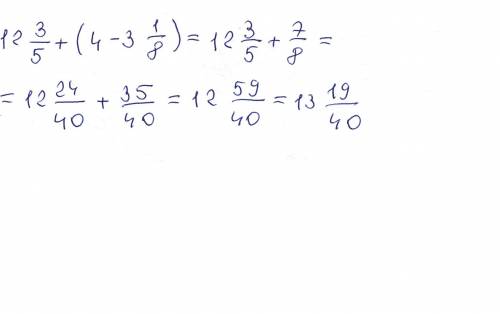 12 3/5 + (4 - 3 1/8) = 12 3/5 + 7/8 =
= 12 24/40 + 35/40 = 12 59/40 = 13 19/40